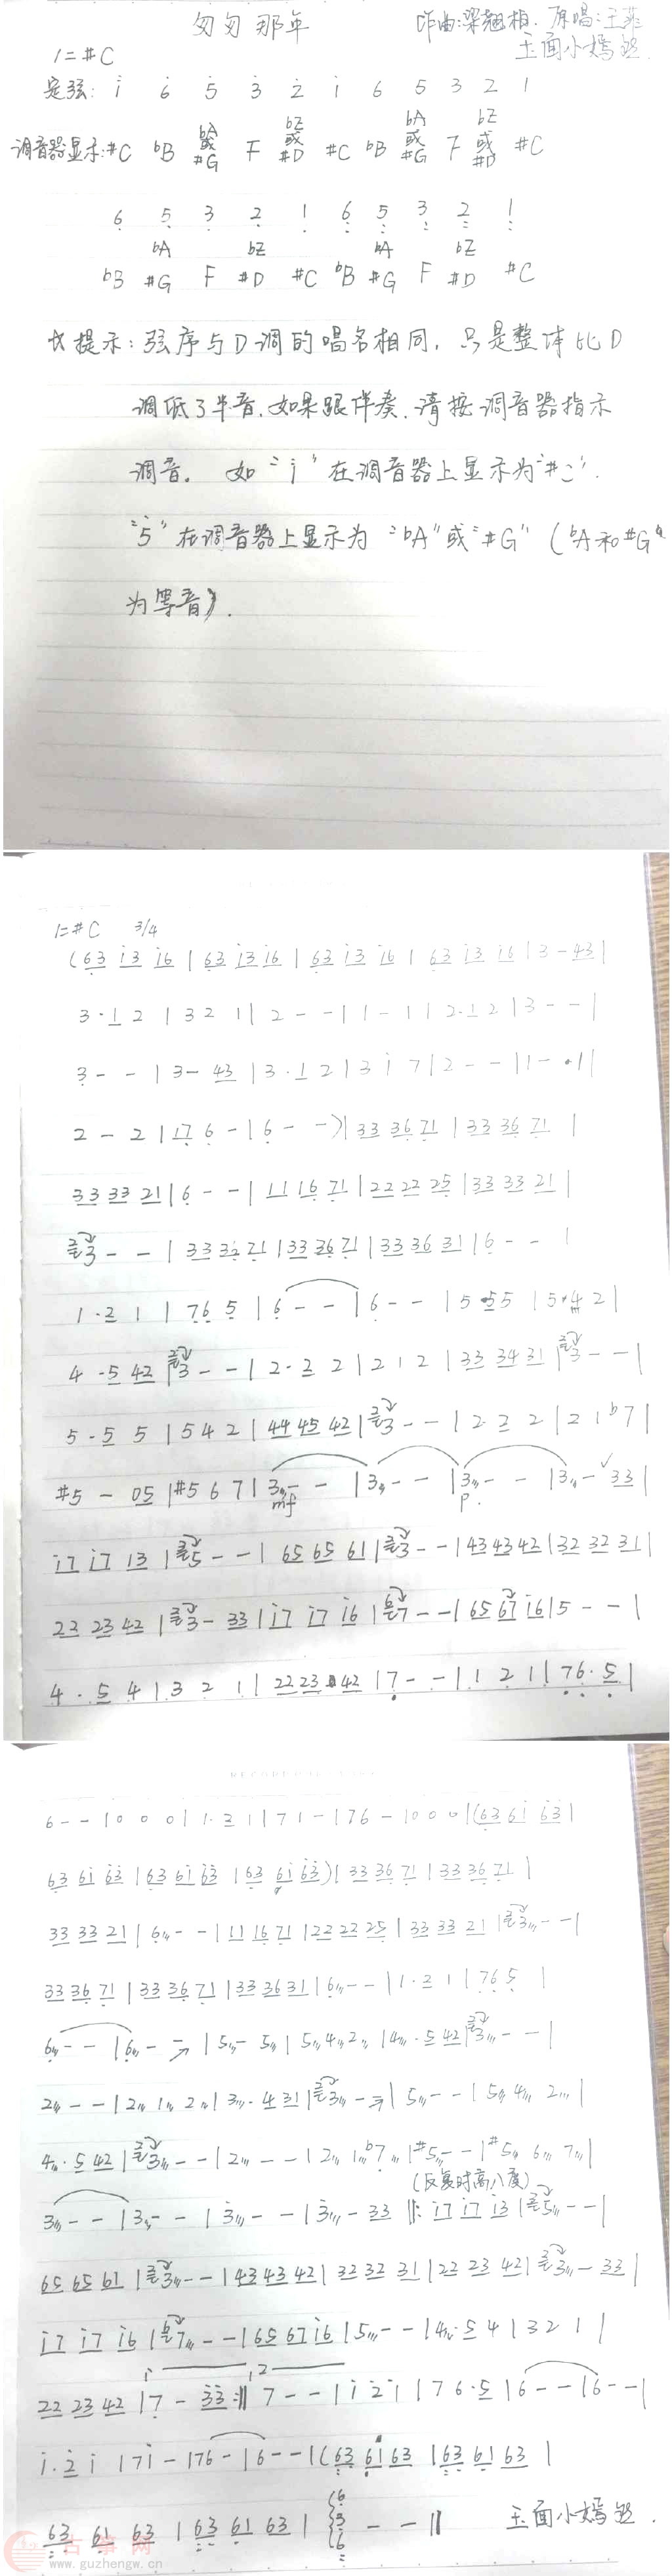 匆匆那年
作曲:梁翘柏. 原唱:王菲
玉面小嫣
1=#C
定弦: i 6 5 3 2 1 6 5 3 2 1
调音器显示:#C bB bA或#G F bE或#D #C bB bA或#G F bE或#D #C
6 5 3 2 1 6 5 3 2 1
bA bE bA bE
bB #G F #D #C bB #G F #D #C
提示:弦序与D调的唱名相同,只是整体比D
调低了半音.如果跟伴奏,请按调音器指示
调音。如"i"在调音器上显示为"#C".
"5"在调音器上显示为"bA"或"#G"(bA和#G
为等音).
1=#C 3/4
(63 i3 i6 | 63 i3 i6 | 63 i3 i6 | 63 i3 i6 | 3 - 43 |
3 · 1 2 | 3 2 1 | 2 - - | 1 - 1 | 2 · 1 2 | 3 - - |
3 - - | 3 - 43 | 3 · 1 2 | 3 i 7 | 2 - - | 1 - · 1 |
2 - 2 | 17 6 - | 6 - - ) | 33 36 71 | 33 36 71 |
33 33 21 | 6 - - | 11 16 71 | 22 22 25 | 33 33 21 |
3 - - | 33 36 71 | 33 36 71 | 33 36 31 | 6 - - |
1 · 2 1 | 76 5 | 6 - - | 6 - - | 5 · 55 | 5 · 4 2 |
4 · 5 42 | 3 - - | 2 · 2 2 | 2 1 2 | 33 34 31 | 3 - - |
5 · 5 5 | 5 4 2 | 44 45 42 | 3 - - | 2 · 2 2 | 2 1 b7 |
#5 - 05 | #5 6 7 | 3 - - | 3 - - | 3 - - | 3 - 33 |
mf p.
i7 i7 i3 | 5 - - | 65 65 61 | 3 - - | 43 43 42 | 32 32 31 |
22 23 42 | 3 - 33 | i7 i7 i6 | 7 - - | 65 67 i6 | 5 - - |
4 · 5 4 | 3 2 1 | 22 23 42 | 7 - - | 1 2 1 | 76 · 5 |
6 - - | 0 0 0 | 1 · 2 1 | 7 1 - | 76 - | 0 0 0 | (63 6i 63 |
63 6i 63 | 63 6i 63 | 63 6i 63) | 33 36 71 | 33 36 71 |
33 33 21 | 6 - - | 11 16 71 | 22 22 25 | 33 33 21 | 3 - - |
33 36 71 | 33 36 71 | 33 36 31 | 6 - - | 1 · 2 1 | 76 5 |
6 - - | 6 - - | 5 - 5 | 5 4 2 | 4 · 5 42 | 3 - - |
2 - - | 2 1 2 | 3 · 4 31 | 3 - - | 5 - - | 5 4 2 |
4 · 5 42 | 3 - - | 2 - - | 2 1 b7 | #5 - - | #5 6 7 |
(反复时高八度)
3 - - | 3 - - | 3 - - | 3 - 33 |: i7 i7 i3 | 5 - - |
65 65 61 | 3 - - | 43 43 42 | 32 32 31 | 22 23 42 | 3 - 33 |
i7 i7 i6 | 7 - - | 65 67 i6 | 5 - - | 4 · 5 4 | 3 2 1 |
1 2
22 23 42 | 7 - 33 :| 7 - - | i 2 i | 7 6 · 5 | 6 - - | 6 - - |
i · 2 i | 7 i - | 76 - | 6 - - | (63 61 63 | 63 61 63 |
63 61 63 | 63 61 63 | 6 3 6 - - || 玉面小嫣
古筝网
www.guzhengw.cn